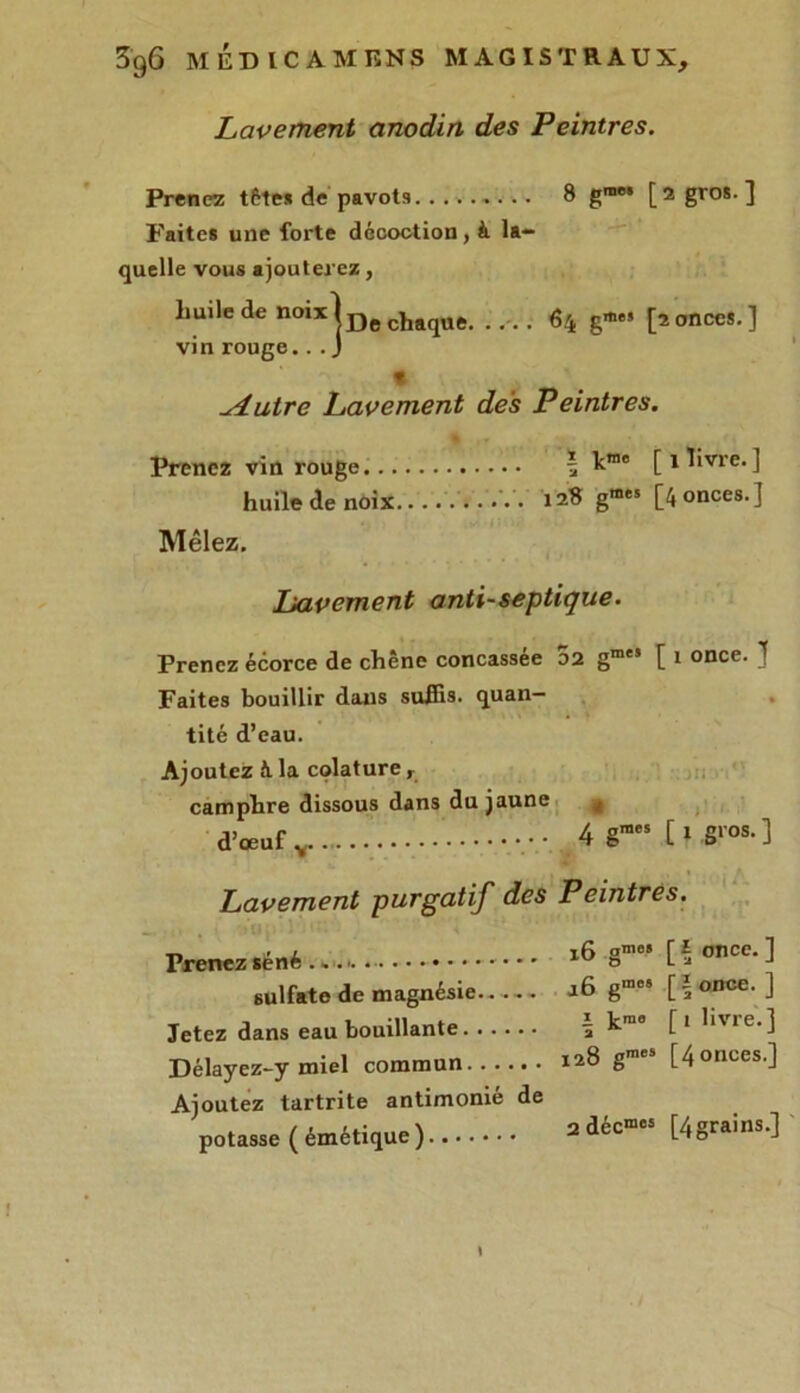 396 MÉDICAMENS MAGISTRAUX,
Lavement anodin des Peintres.
Prenez têtes de pavots.......... 8 gmes [2 gros.]
Faites une forte décoction, à la-
quelle vous ajouterez,
huile de noix } De chaque...... 64 gmes [2 onces.]
vin rouge...
Autre Lavement des Peintres.
Prenez vin rouge............ ½ kme [1 livre.]
huile de noix........... 128 gmes [4 onces.]
Mêlez.
Lavement anti-septique.
Prenez écorce de chêne concassée 32 gmes [1 once.]
Faites bouillir dans suffis. quan-
tité d'eau.
Ajoutez à la colature,
camphre dissous dans du jaune
d'œuf................ 4 gmes [1 gros.]
Lavement purgatif des Peintres.
Prenez séné............... 16 gmes [½ once.]
sulfate de magnésie..... 16 gmes [½ once.]
Jetez dans eau bouillante...... ½ kme [1 livre.]
Délayez-y miel commun...... 128 gmes [4 onces.]
Ajoutez tartrite antimonié de
potasse (émétique)....... 2 décmes [4 grains.]